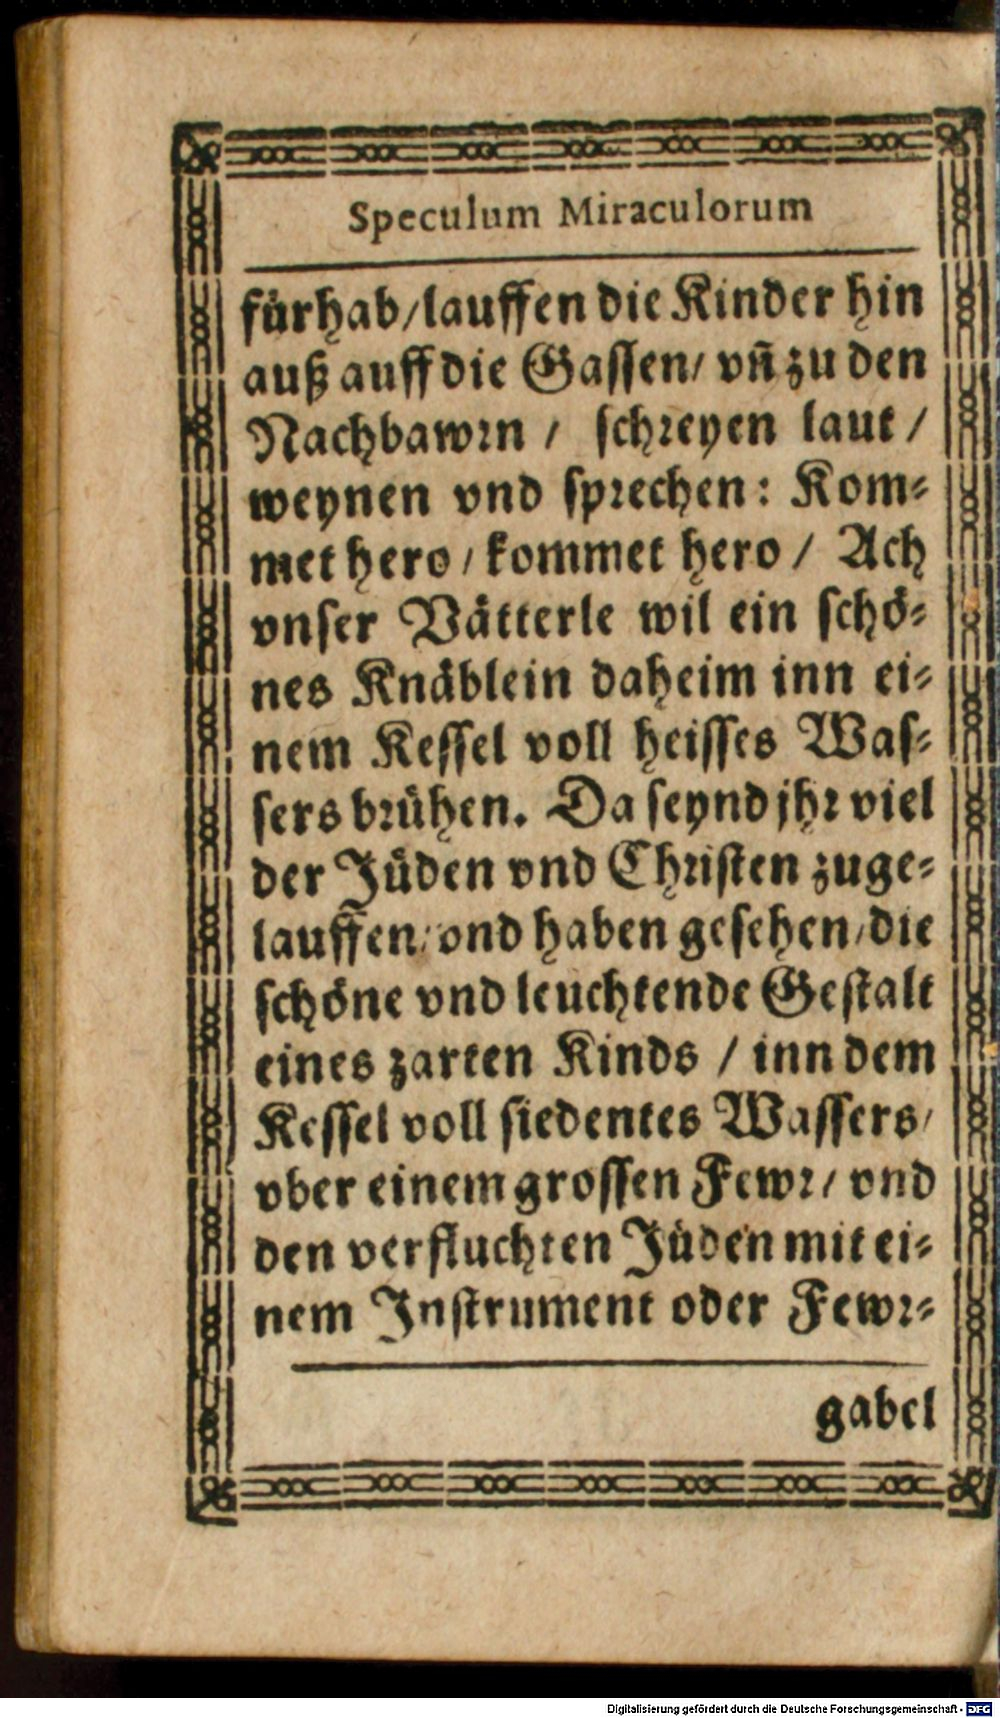 Speculum Miraculorum
fürhab/lauffen die Kinder hin
auß auff die Gassen/ vñ zu den
Nachbawrn / schreyen laut /
weynen vnd sprechen: Kom⸗
met hero / kommet hero / Ach
vnser Vätterle wil ein schö⸗
nes Knäblein daheim inn ei⸗
nem Kessel voll heisses Was⸗
sers brühen. Da seynd jhr viel
der Jüden vnd Christen zuge⸗
lauffen/ vnd haben gesehen/ die
schöne vnd leuchtende Gestalt
eines zarten Kinds / inn dem
Kessel voll siedentes Wassers/
vber einem grossen Fewr/ vnd
den verfluchten Jüden mit ei⸗
nem Instrument oder Fewr⸗
gabel
Digitalisierung gefördert durch die Deutsche Forschungsgemeinschaft - DFG